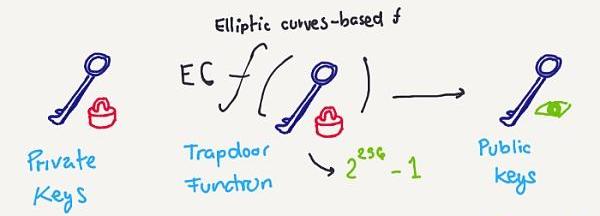 Elliptic curves-based f
EC f( ) →
Private
Keys
Trapdoor
Function
2^256 - 1
Public
keys